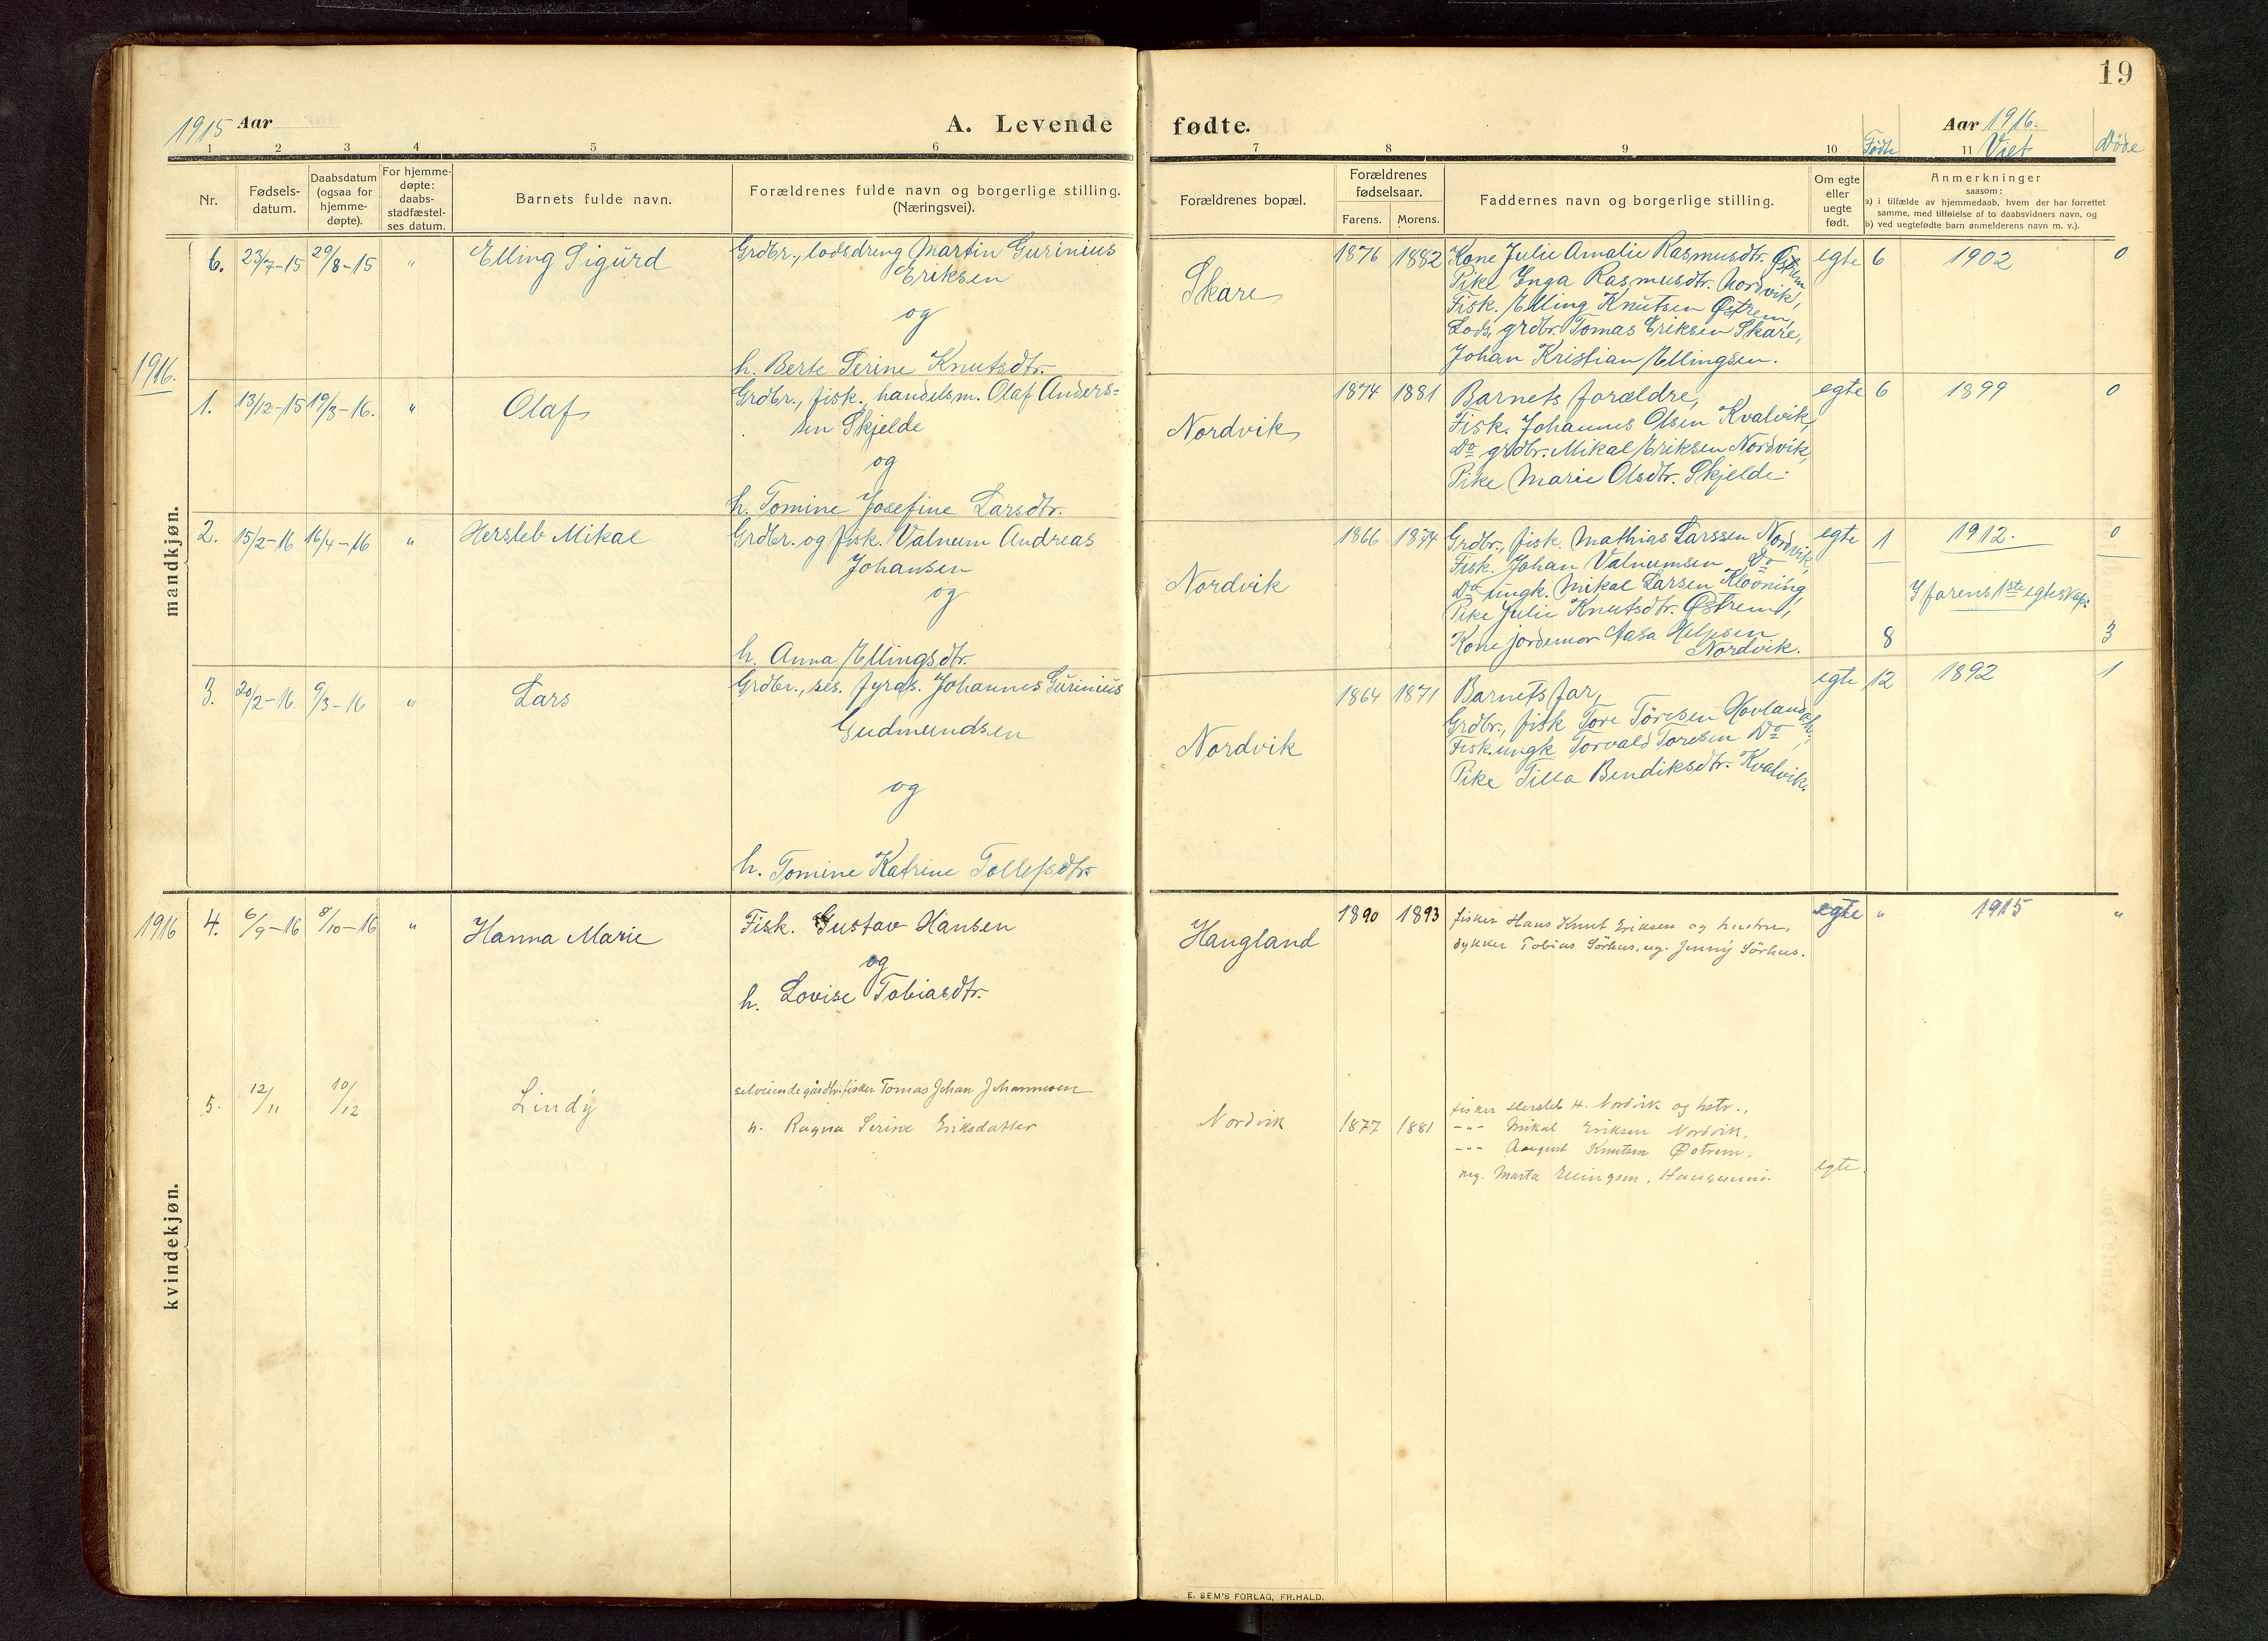 19
1915 Aar
A. Levende fødte.
Aar 1916.
1 2 3 4 5 6 7 8 9 10 Fødte 11 Viet Døde
Nr.
Fødsels-
datum.
Daabsdatum
(ogsaa for
hjemme-
døpte).
For hjemme-
døpte:
daabs-
stadfæstel-
ses datum.
Barnets fulde navn.
Forældrenes fulde navn og borgerlige stilling.
(Næringsvei).
Forældrenes bopæl.
Forældrenes
fødselsaar.
Farens. Morens.
Faddernes navn og borgerlige stilling.
Om egte
eller
uegte
født.
Anmerkninger
saasom:
a) i tilfælde av hjemmedaab, hvem der har forrettet
samme, med tilføielse af to daabsvidners navn, og
b) ved uegtefødte barn anmelderens navn m. v.).
mandkjøn.
6. 23/7-15 29/8-15 " Elling Sigurd
Grdbr., lodsdreng Martin Gurinius
Eriksen
og
h. Berte Serine Knutsdtr.
Skare
1876 1882
Kone Julie Amalie Rasmusdtr. Østrem
Pike Inga Rasmusdtr. Nordvik,
Fisk. Elling Knutsen Østrem,
Lods, grdbr. Tomas Eriksen Skare,
Johan Kristian Ellingsen.
egte 6 1902 0
1916.
1. 13/12-15 19/3-16. " Olaf
Grdbr., fisk., handelsm. Olaf Anders-
sen Skjelde
og
h. Tomine Josefine Larsdtr.
Nordvik
1874 1881
Barnets forældre,
Fisk. Johannes Olsen Kvalvik,
Do grdbr. Mikal Eriksen Nordvik,
Pike Marie Olsdtr. Skjelde.
egte 6 1899 0
2. 15/2-16 16/4-16 " Hersleb Mikal
Grdbr. og fisk. Valnum Andreas
Johansen
og
h. Anna Ellingsdtr.
Nordvik
1866 1874
Grdbr., fisk. Mathias Larssen Nordvik,
Fisk. Johan Valnumsen Do,
Do ungk. Mikal Larsen Klovning,
Pike Julie Knutsdtr. Østrem,
Kone jordemor Aasa
Nordvik.
egte 1 1912. 0
I farens 1ste egteskap:
8 3
3. 20/2-16. 9/3-16 " Lars
Grdbr., res. fyras. Johannes Gurinius
Gudmundsen
og
h. Tomine Katrine Tollefsdtr.
Nordvik
1864 1871
Barnets far,
Grdbr., fisk Tore Töresen
Fisk. ungk Torvald Toresen Do,
Pike Tilla Bendiksdtr. Kvalvik.
egte 12 1892 1
kvindekjøn.
1916 4. 6/9-16 8/10-16 " Hanna Marie
Fisk. Gustav Hansen
og
h. Lovise Tobiasdtr.
Haugland
1890 1893
fisker Hans Knut Eriksen og hustru,
dykker Tobias Sörhus, ug. Jenny Sörhus.
egte " 1915 "
5. 12/11 10/12 Lindy
selveiende gårdbr. fisker Tomas Johan Johannesen
h. Ragna Serine Eriksdatter
Nordvik
1877 1881
fisker Hersleb H. Nordvik og hstr.,
-"- Mikal Eriksen Nordvik,
-"- August Knutsen Østrem,
ug. Marta Ellingsen, Haugesund.
egte.
E. SEM'S FORLAG, FR.HALD.